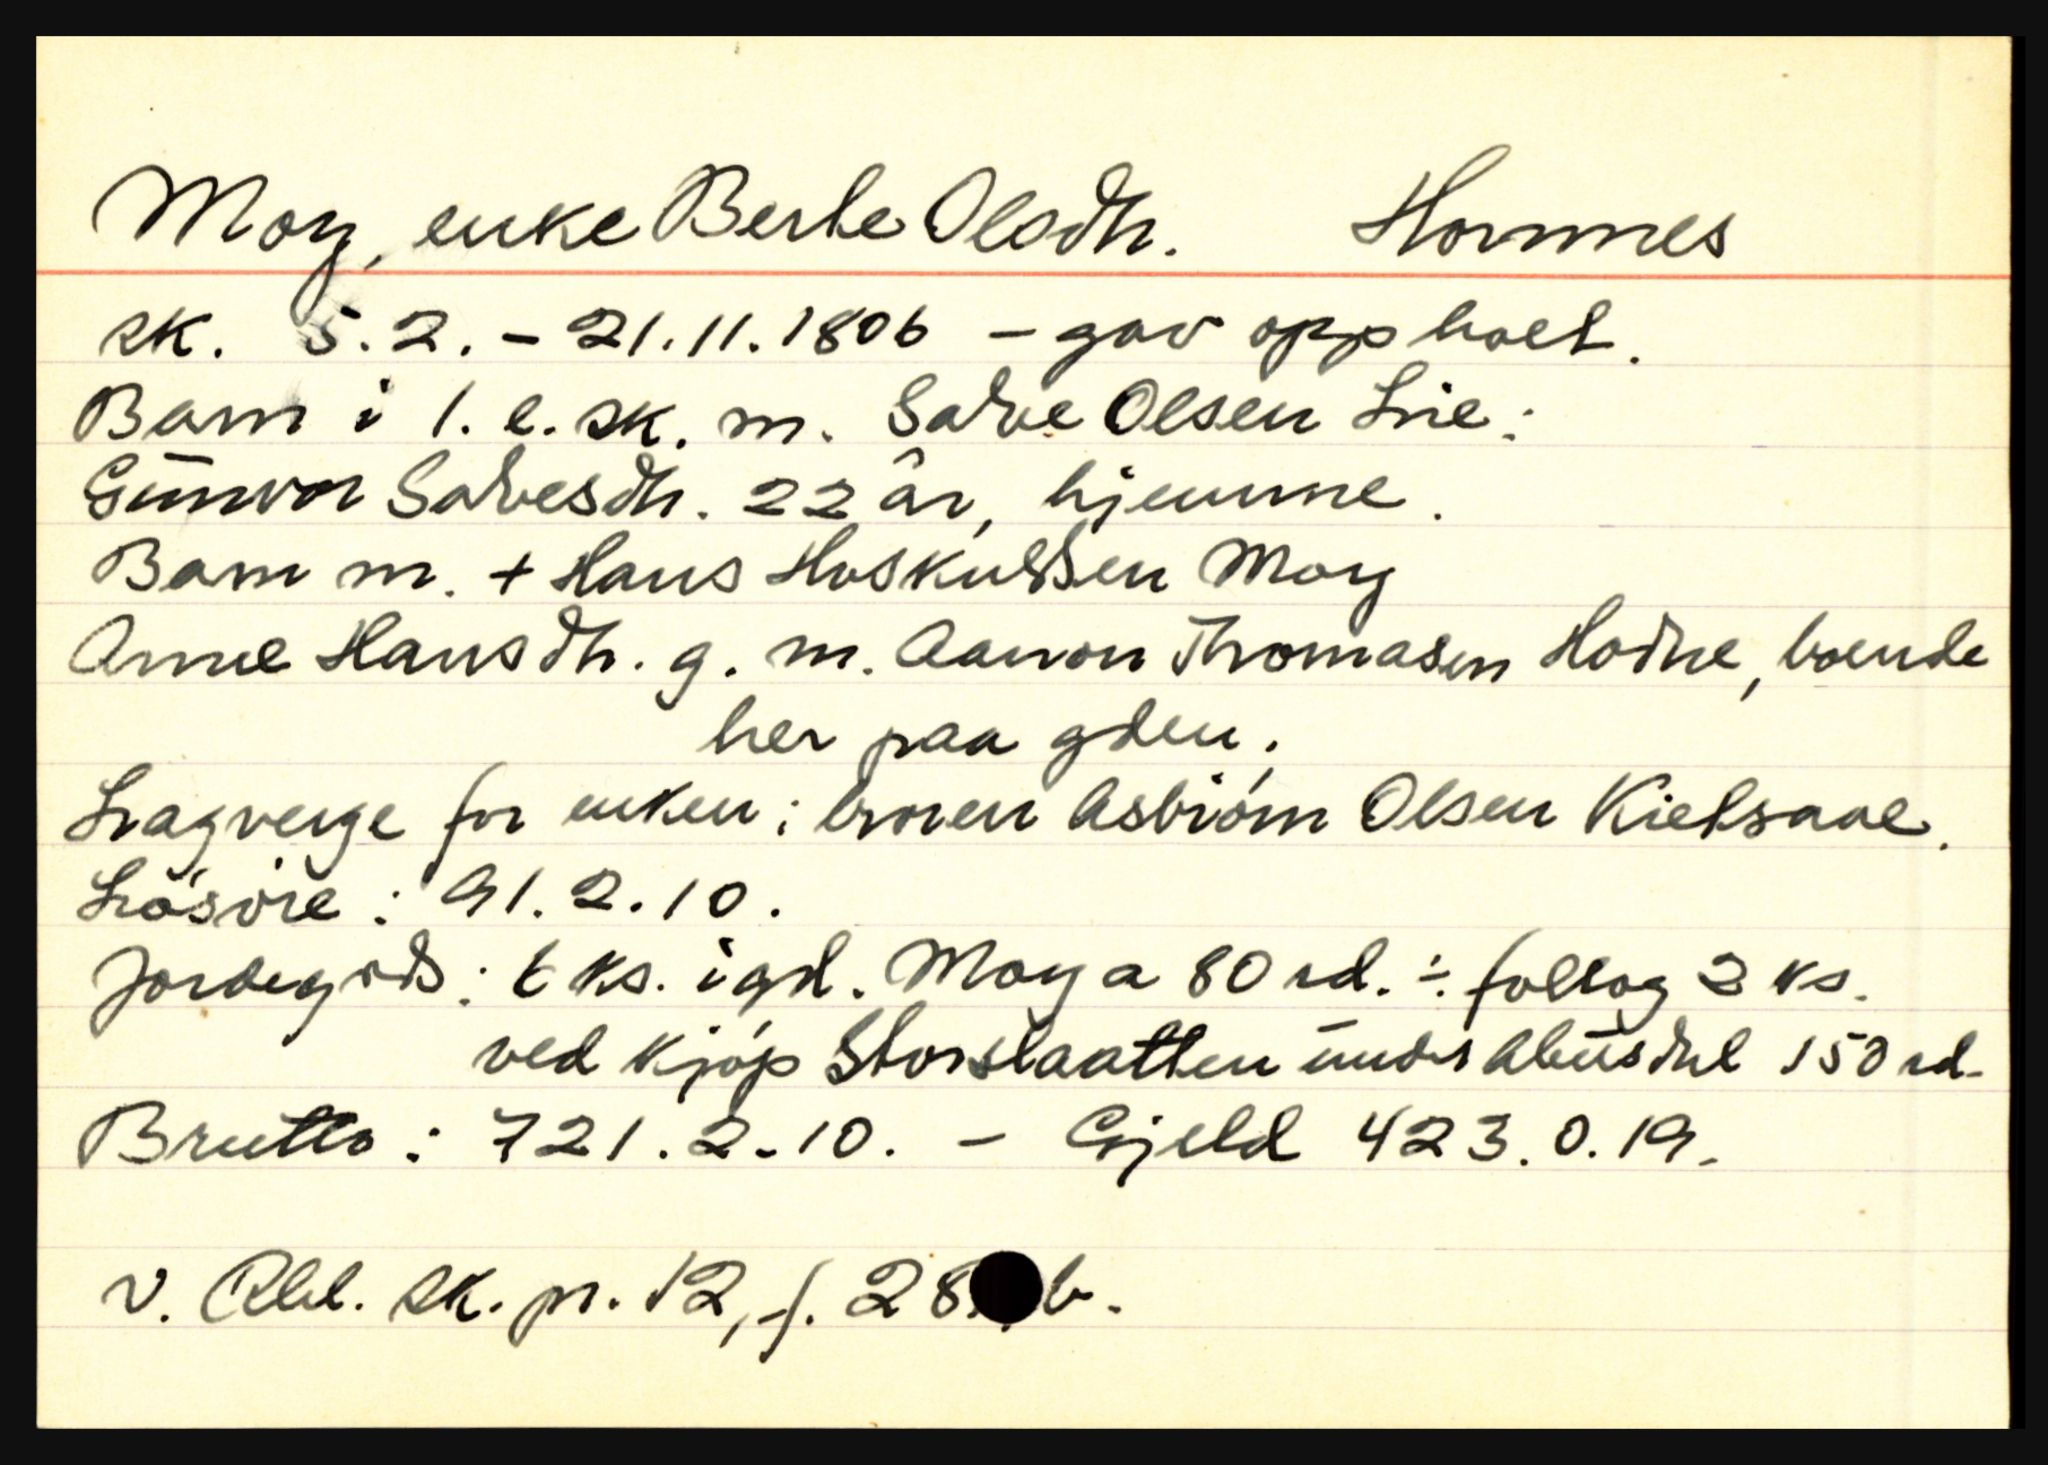 Moy, enke Berte Olsdtr. Hornnes
sk. 5.2. - 21.11.1806 - gav opp boet.
Barn i 1. e. sk. m. Salve Olsen Lie:
Gunvor Salvesdtr. 22 år, hjemme.
Barn m. + Hans Hoskuldsen Moy
Anne Hansdtr. g. m. Aanon Thomasen Hodne, boende
her paa gden.
Lagverge for enken: broren Asbiörn Olsen Kielsaae.
Lösöre: 91.2.10.
Jordegods: 6 ks. i gd. Moy a 80 rd. ÷ follog 2 ks.
ved kjöp Storslaatten under Abusdal 150 rd.
Brutto: 721.2.10. - Gjeld 423.0.19.
v. Rbl. sk. pr. 12, f. 28 b.